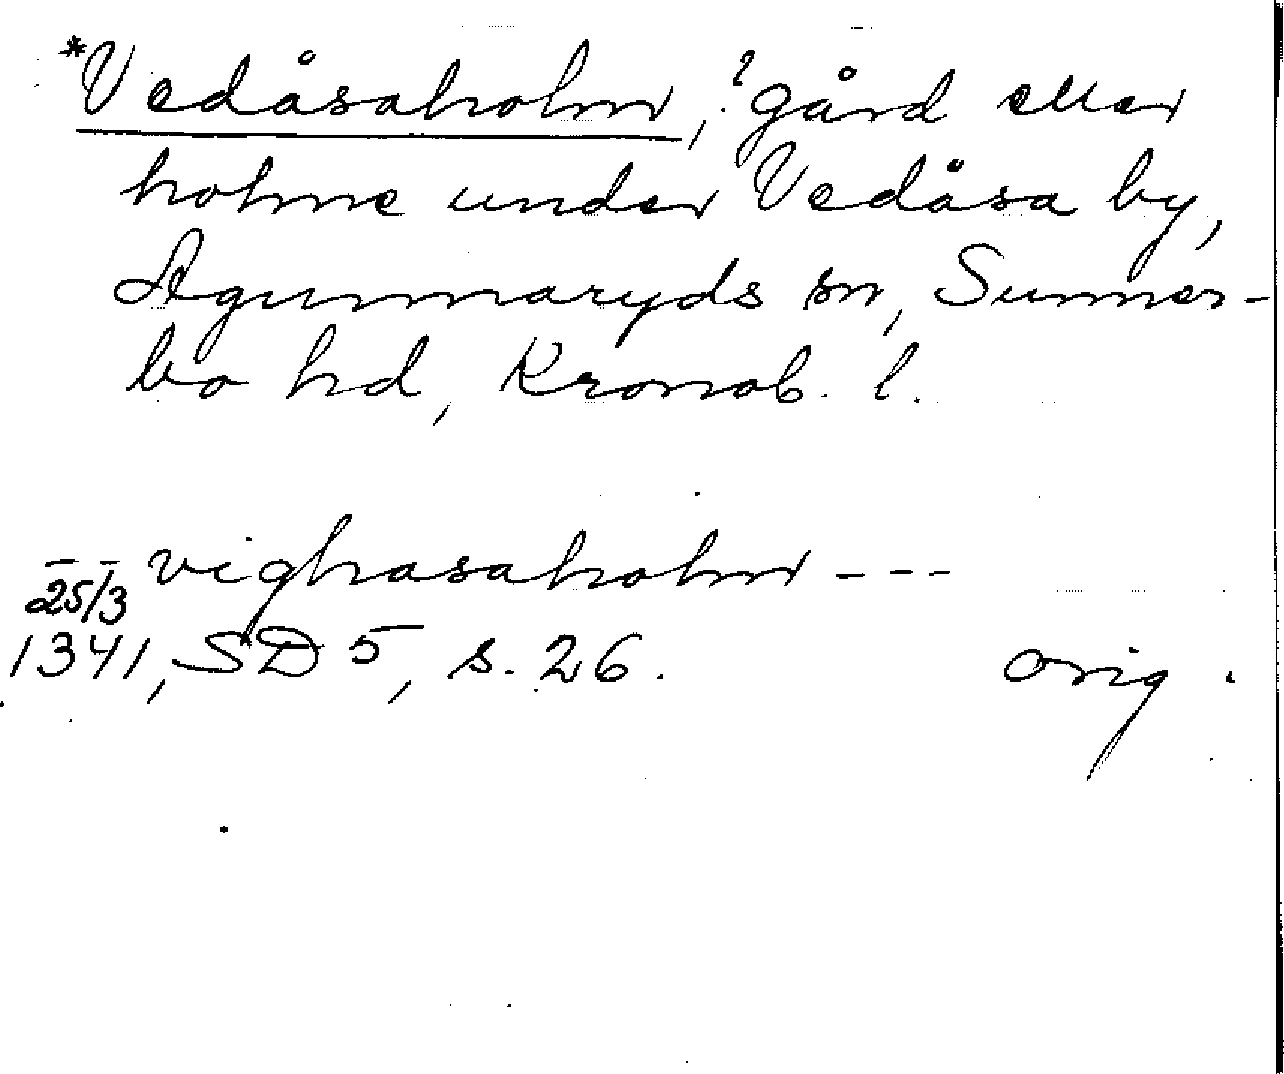 *Vedåsaholm, ?gård eller
holme under Vedåsa by,
Agunnaryds sn, Sunner-
bo hd, Kronob. l.
– – vighasaholm – – –
25/3
1341, SD 5, s. 26. orig.